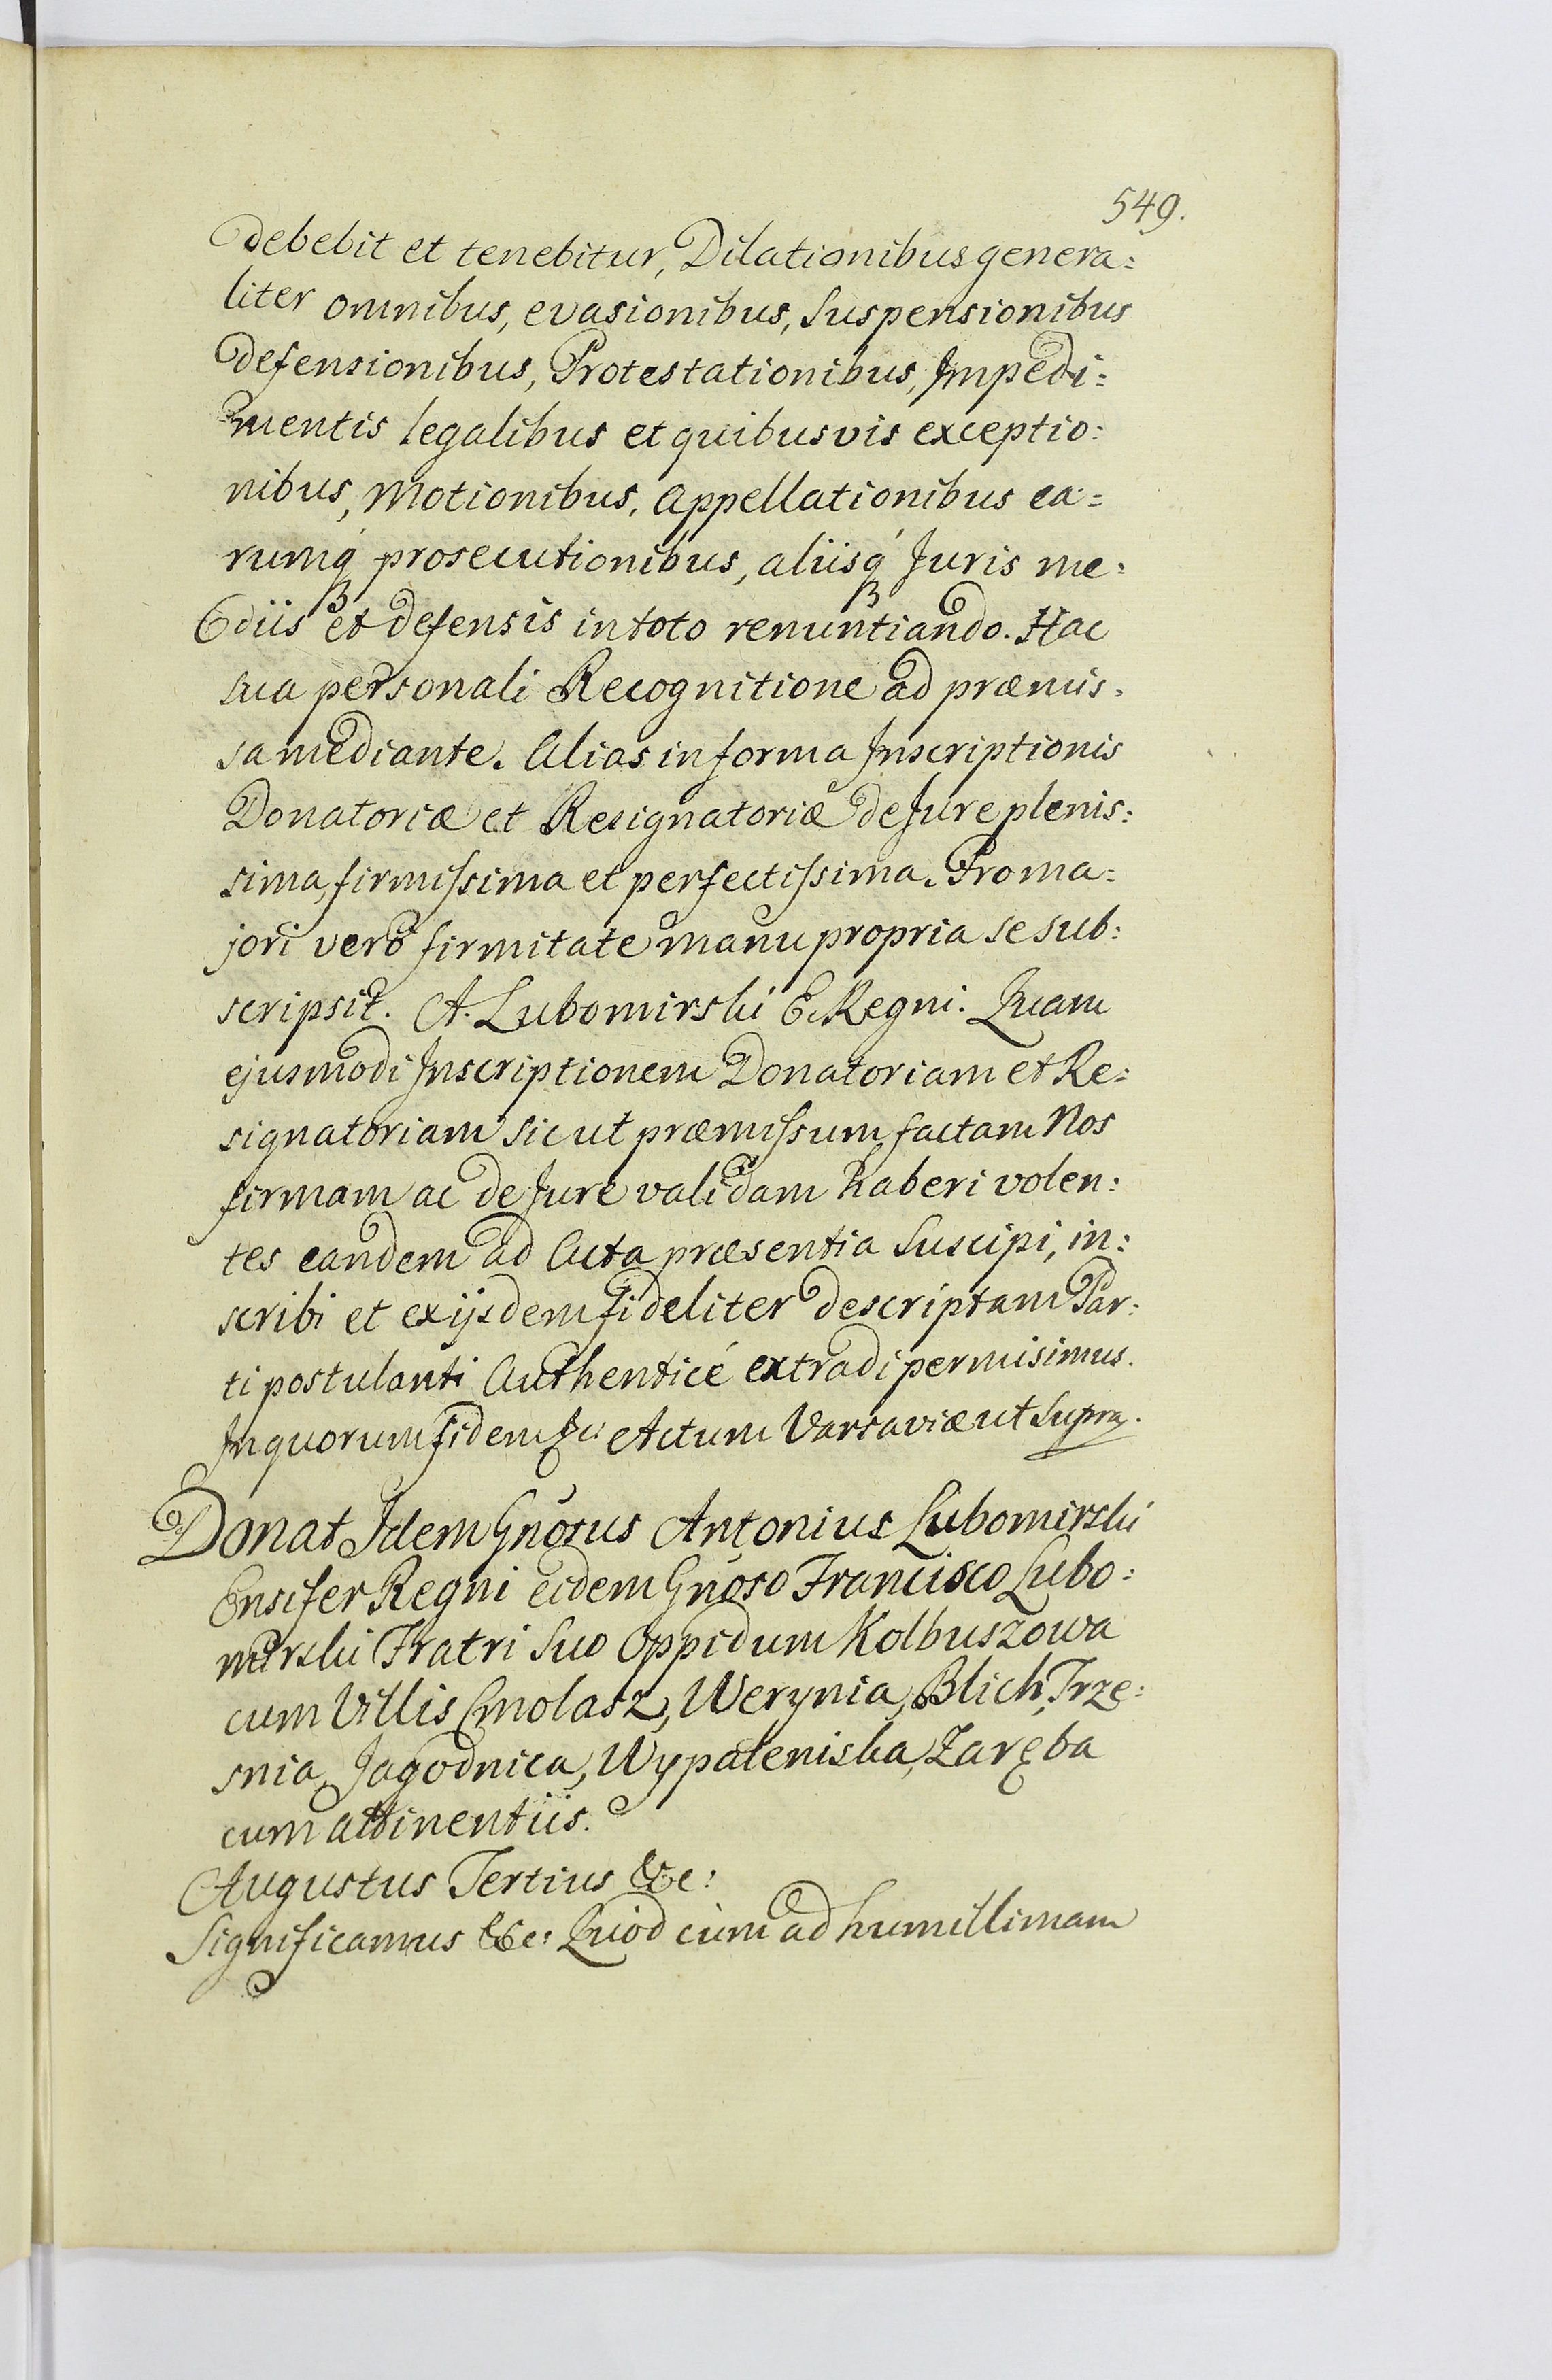 549.
debebit et tenebitur, Dilationibus genera=
liter omnibus, evasionibus, Suspensionibus
defensionibus, Protestationibus, Impedi=
mentis legalibus et quibusvis exceptio:
nibus, Motionibus, Appellationibus ea=
rumq́ prosecutionibus, aliisq́ Juris me:
diis et defensis in toto renuntiando. Hac
sua personali Recognitione ad præmis:
sa mediante. Alias in forma Inscriptionis
Donatoriæ et Resignatoriæ de Jure plenis:
sima, firmissima et perfectissima. Pro ma:
jori vero firmitate manu propria se sub:
scripsit. A. Lubomirski E. Regni. Quam
ejusmodi Inscriptionem Donatoriam et Re:
signatoriam sicut præmissum factam Nos
firmam ac de Jure validam haberi volen:
tes eandem ad Acta præsentia Suscipi, in:
scribi et ex ijsdem fideliter descriptam Par:
ti postulanti Authenticé extradi permisimus.
In quorum fidem &c: Actum Varsaviæ ut Supra.
Donat Idem Gnosus Antonius Lubomirski
Ensifer Regni eidem Gnoso Francisco Lubo:
mirski Fratri Suo Oppidum Kolbuszowa
cum Villis Cmolasz, Werynia, Blich, Trze:
snia, Jagodnica, Wypaleniska, Zaręba
cum attinentiis.
Augustus Tertius &c:
Significamus &c: Quod cum ad humillimam